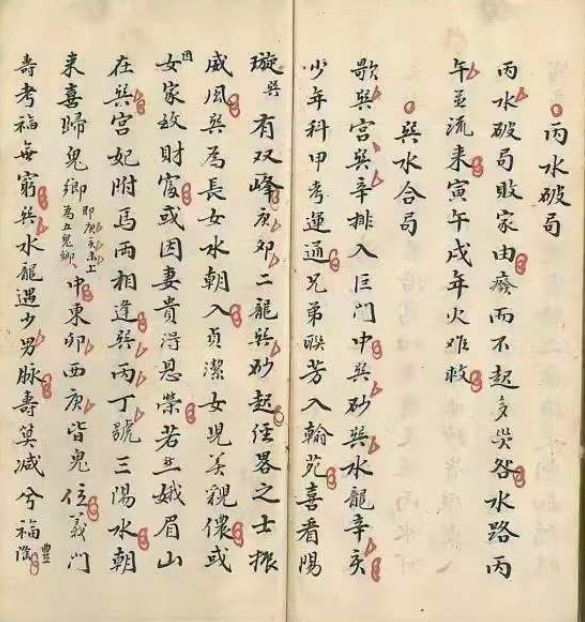 丙水破局
丙水破局敗家由癈而不起多災咎水路丙
午並流来寅午戌年火难救
巽水合局
歌巽宫巽辛排入巨門中巽砂巽水龍辛亥
少年科甲考運通兄弟聮芳入翰苑喜看陽
璇巽有双峰庚卯二龍巽砂起経畧之士振
威風巽為長女水朝入貞潔女児美親儂或
因女家致財富或因妻貴淂恩榮若三娥眉山
在巽宫妃附馬両相逢巽丙丁號三陽水朝
来喜歸鬼鄉即庚亥未上為五鬼鄉中東卯西庚皆鬼位義門
壽考福無窮巽水龍遇少男脉壽算减兮福豊隆